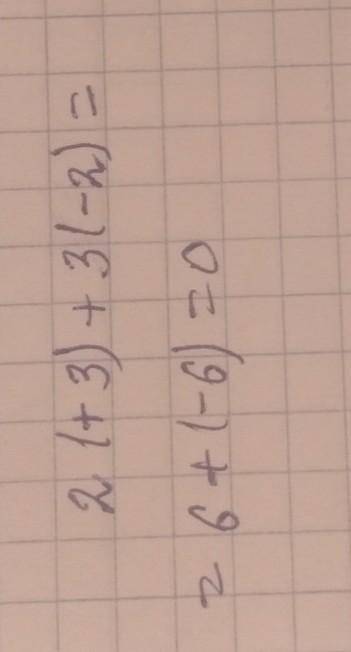 2 (+3) + 3 (-2) =
= 6 + (-6) = 0